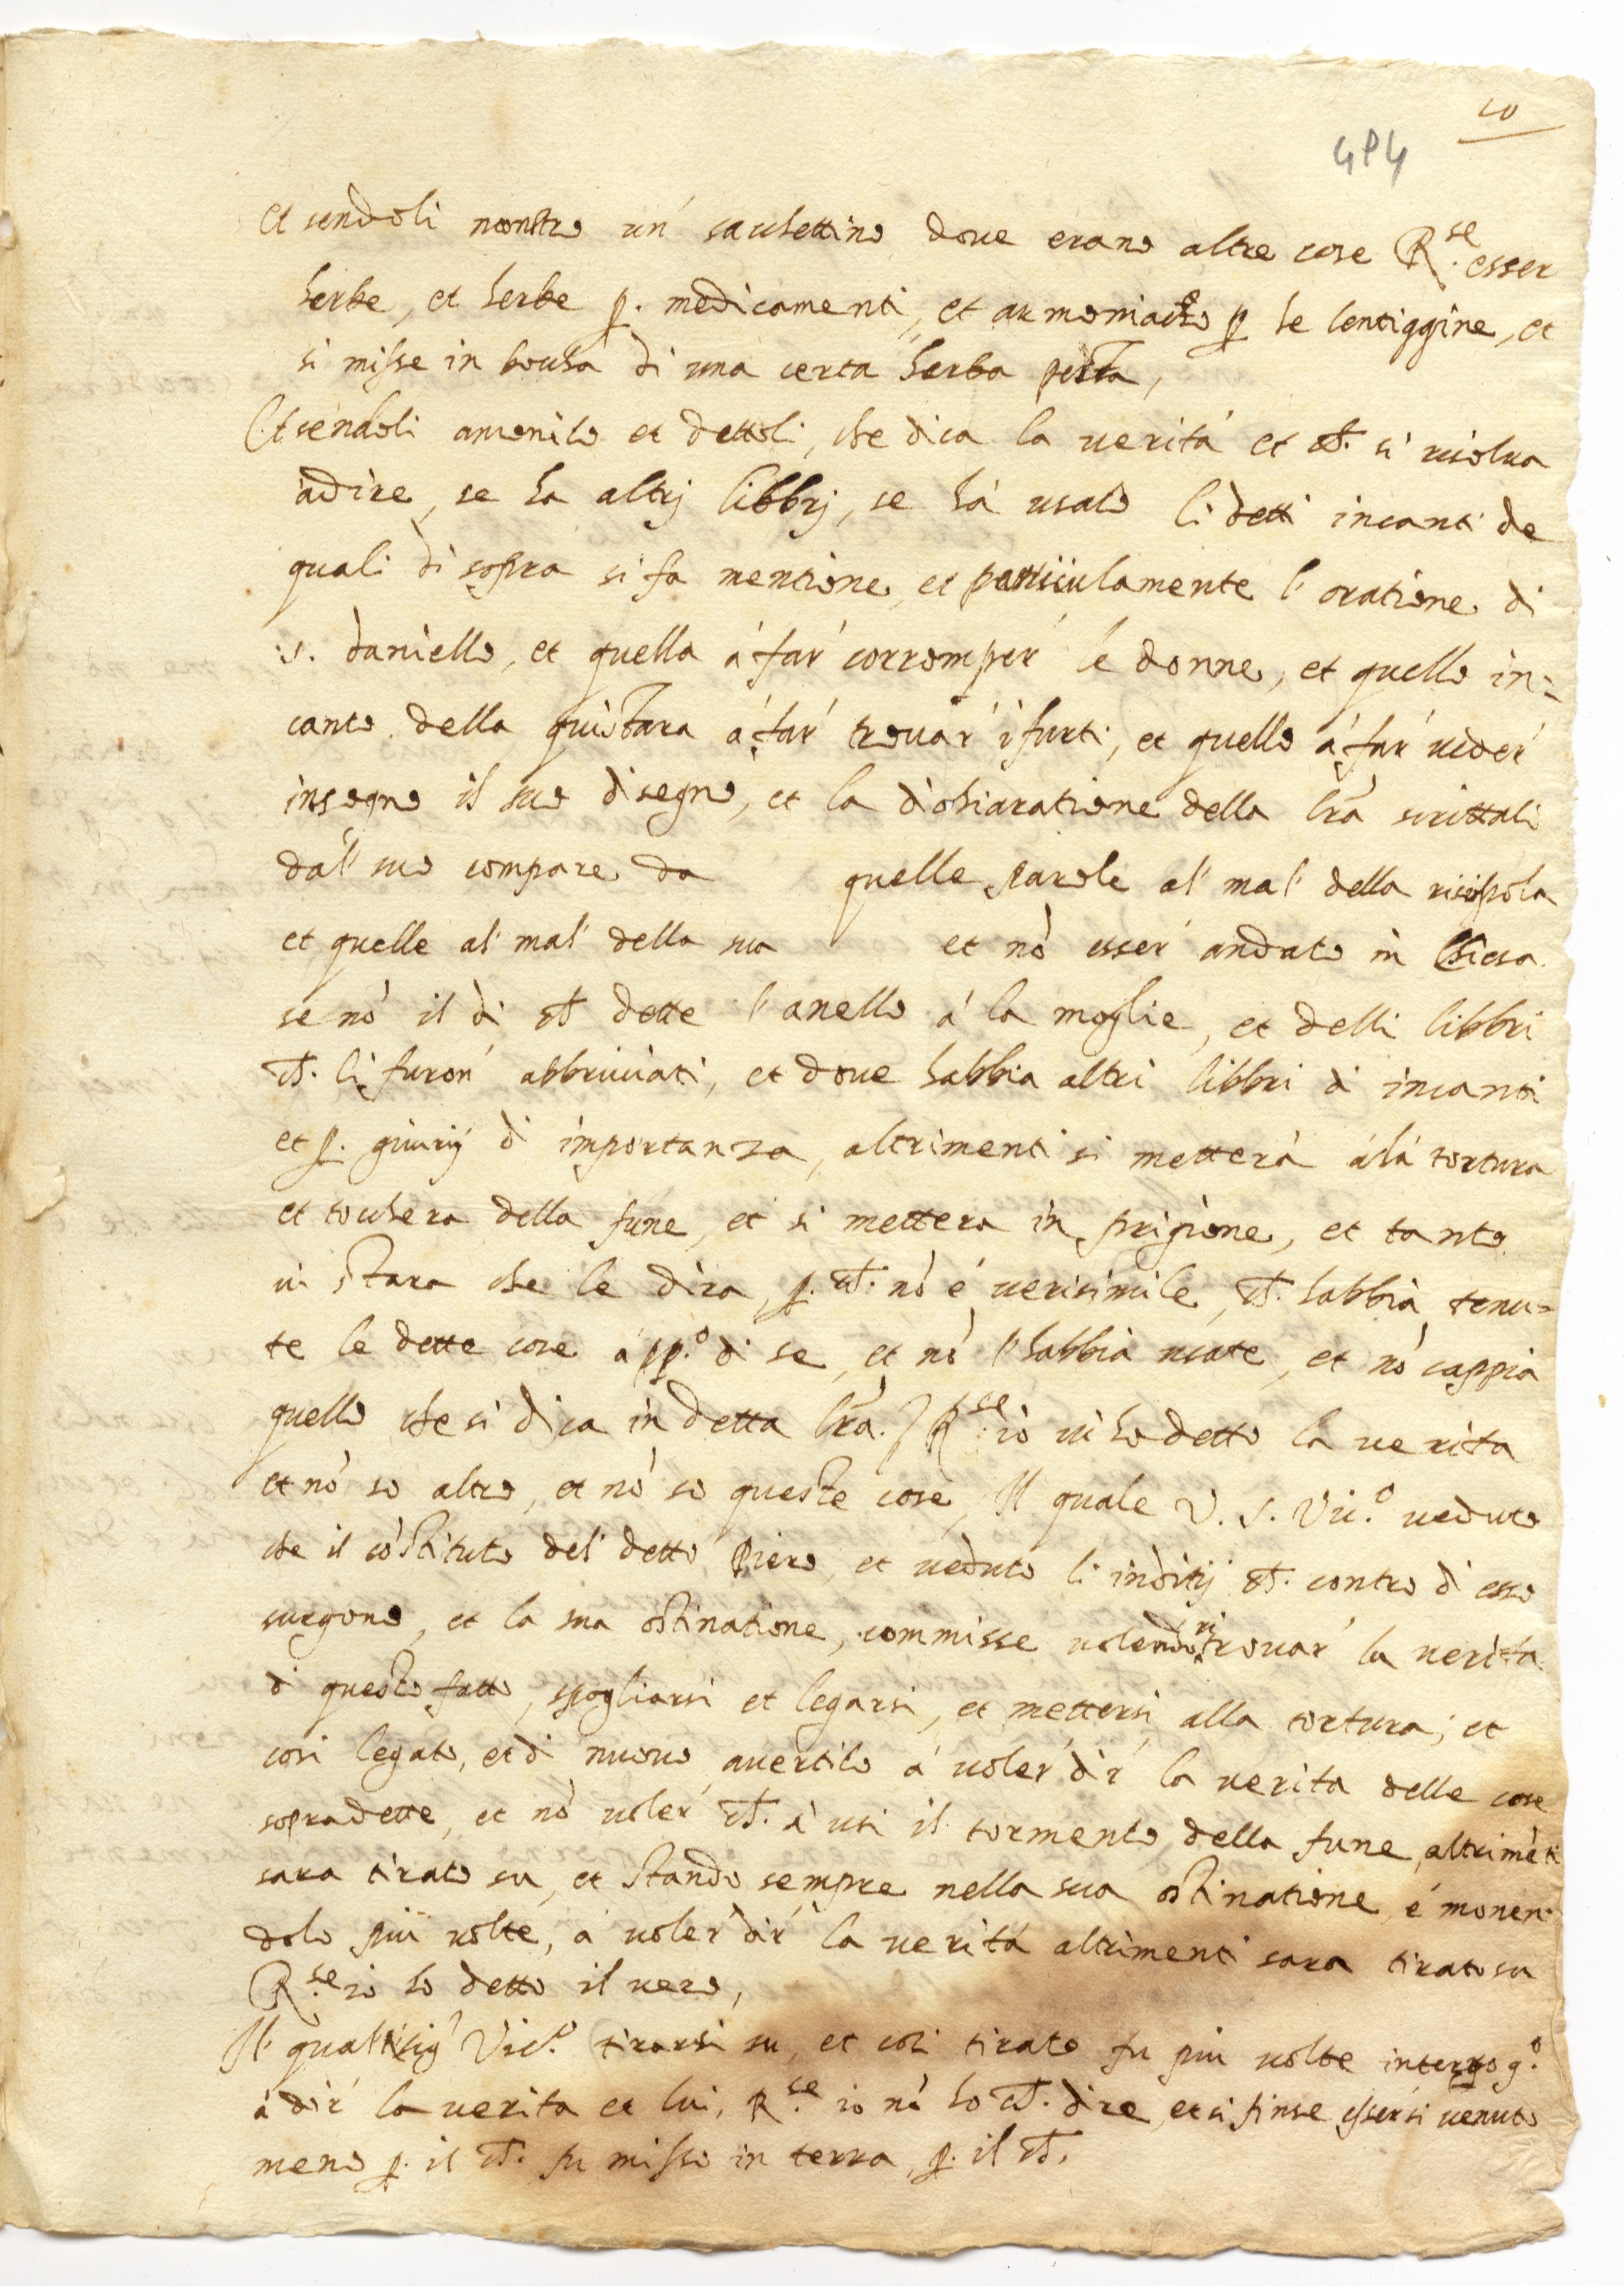 10
484
Et sendoli monstro un' sachettino dove erano altre cose R.se esser
herbe, et herbe p. medicamenti, et armoniaco p le lentiggine, et
si misse in bocha di una certa herba pesta,
Et sendoli amonito et dettoli, che dica la verità et ch. si risolva
adire, se ha altrj libbrj, se hà usato li detti incanti de
quali di sopra si fa mentione, et particulamente l'oratione di
s. daniello, et quella á far' corromper' le donne, et quello in=
canto della guastara á far' trovar' i furti, et quello á far' veder'
insogno il suo disegno, et la dichiaratione della lrã scrittali
dal' suo compare da quelle parole al' mal' della risipola
et quelle al' mal' della sua et nò esser' andato in Chiesa
se nò il dì ch dette l'anello á la moglie, et delli libbri
ch. li furon' abbruciati, et dove habbia altri libbri di incanti
et p. giurij di importanza, altrimenti si metterà álà tortura
et tochera della fune, et si mettera in prigione, et tanto
vi stara che le dira, p. ch. nò é verisimile, ch. habbia tenu=
te le dette cose á pp.o di se, et nò l'habbia usate, et nò sappia
quello che si dica in detta lrã. R.se io vi ho detto la verita
et nò so altro, et nò so queste cose, Il quale V. S. Vic.o veduto
che il còstituto del' detto Piero, et veduto li inditij ch. contro di esso
surgono, et la sua ostinatione, commisse volendo ritrovar' la verita
di questo fatto, spogliarsi et legarsi, et mettersi alla tortura; et
cosi legato, et di nuovo avertito á voler' dir' la verita delle cose
sopradette, et nò voler' ch. si usi il tormento della fune, altrimèti
sara tirato su, et stando sempre nella sua ostinatione, é monen
dolo più volte, á voler' dir' la verità altrimenti sara tirato su
R.se io ho detto il vero,
Il qual sig' Vic.o tirarsi su, et così tirato fu piu volte interrog.o
á dir' la verita et lui, R.se io nò ho ch. dire, et si finse essersi venuto
meno p. il ch. fu misso in terra, p. il ch.